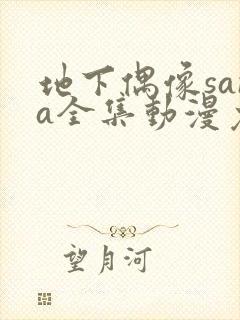 地下偶像sa
a全集動漫
望月河